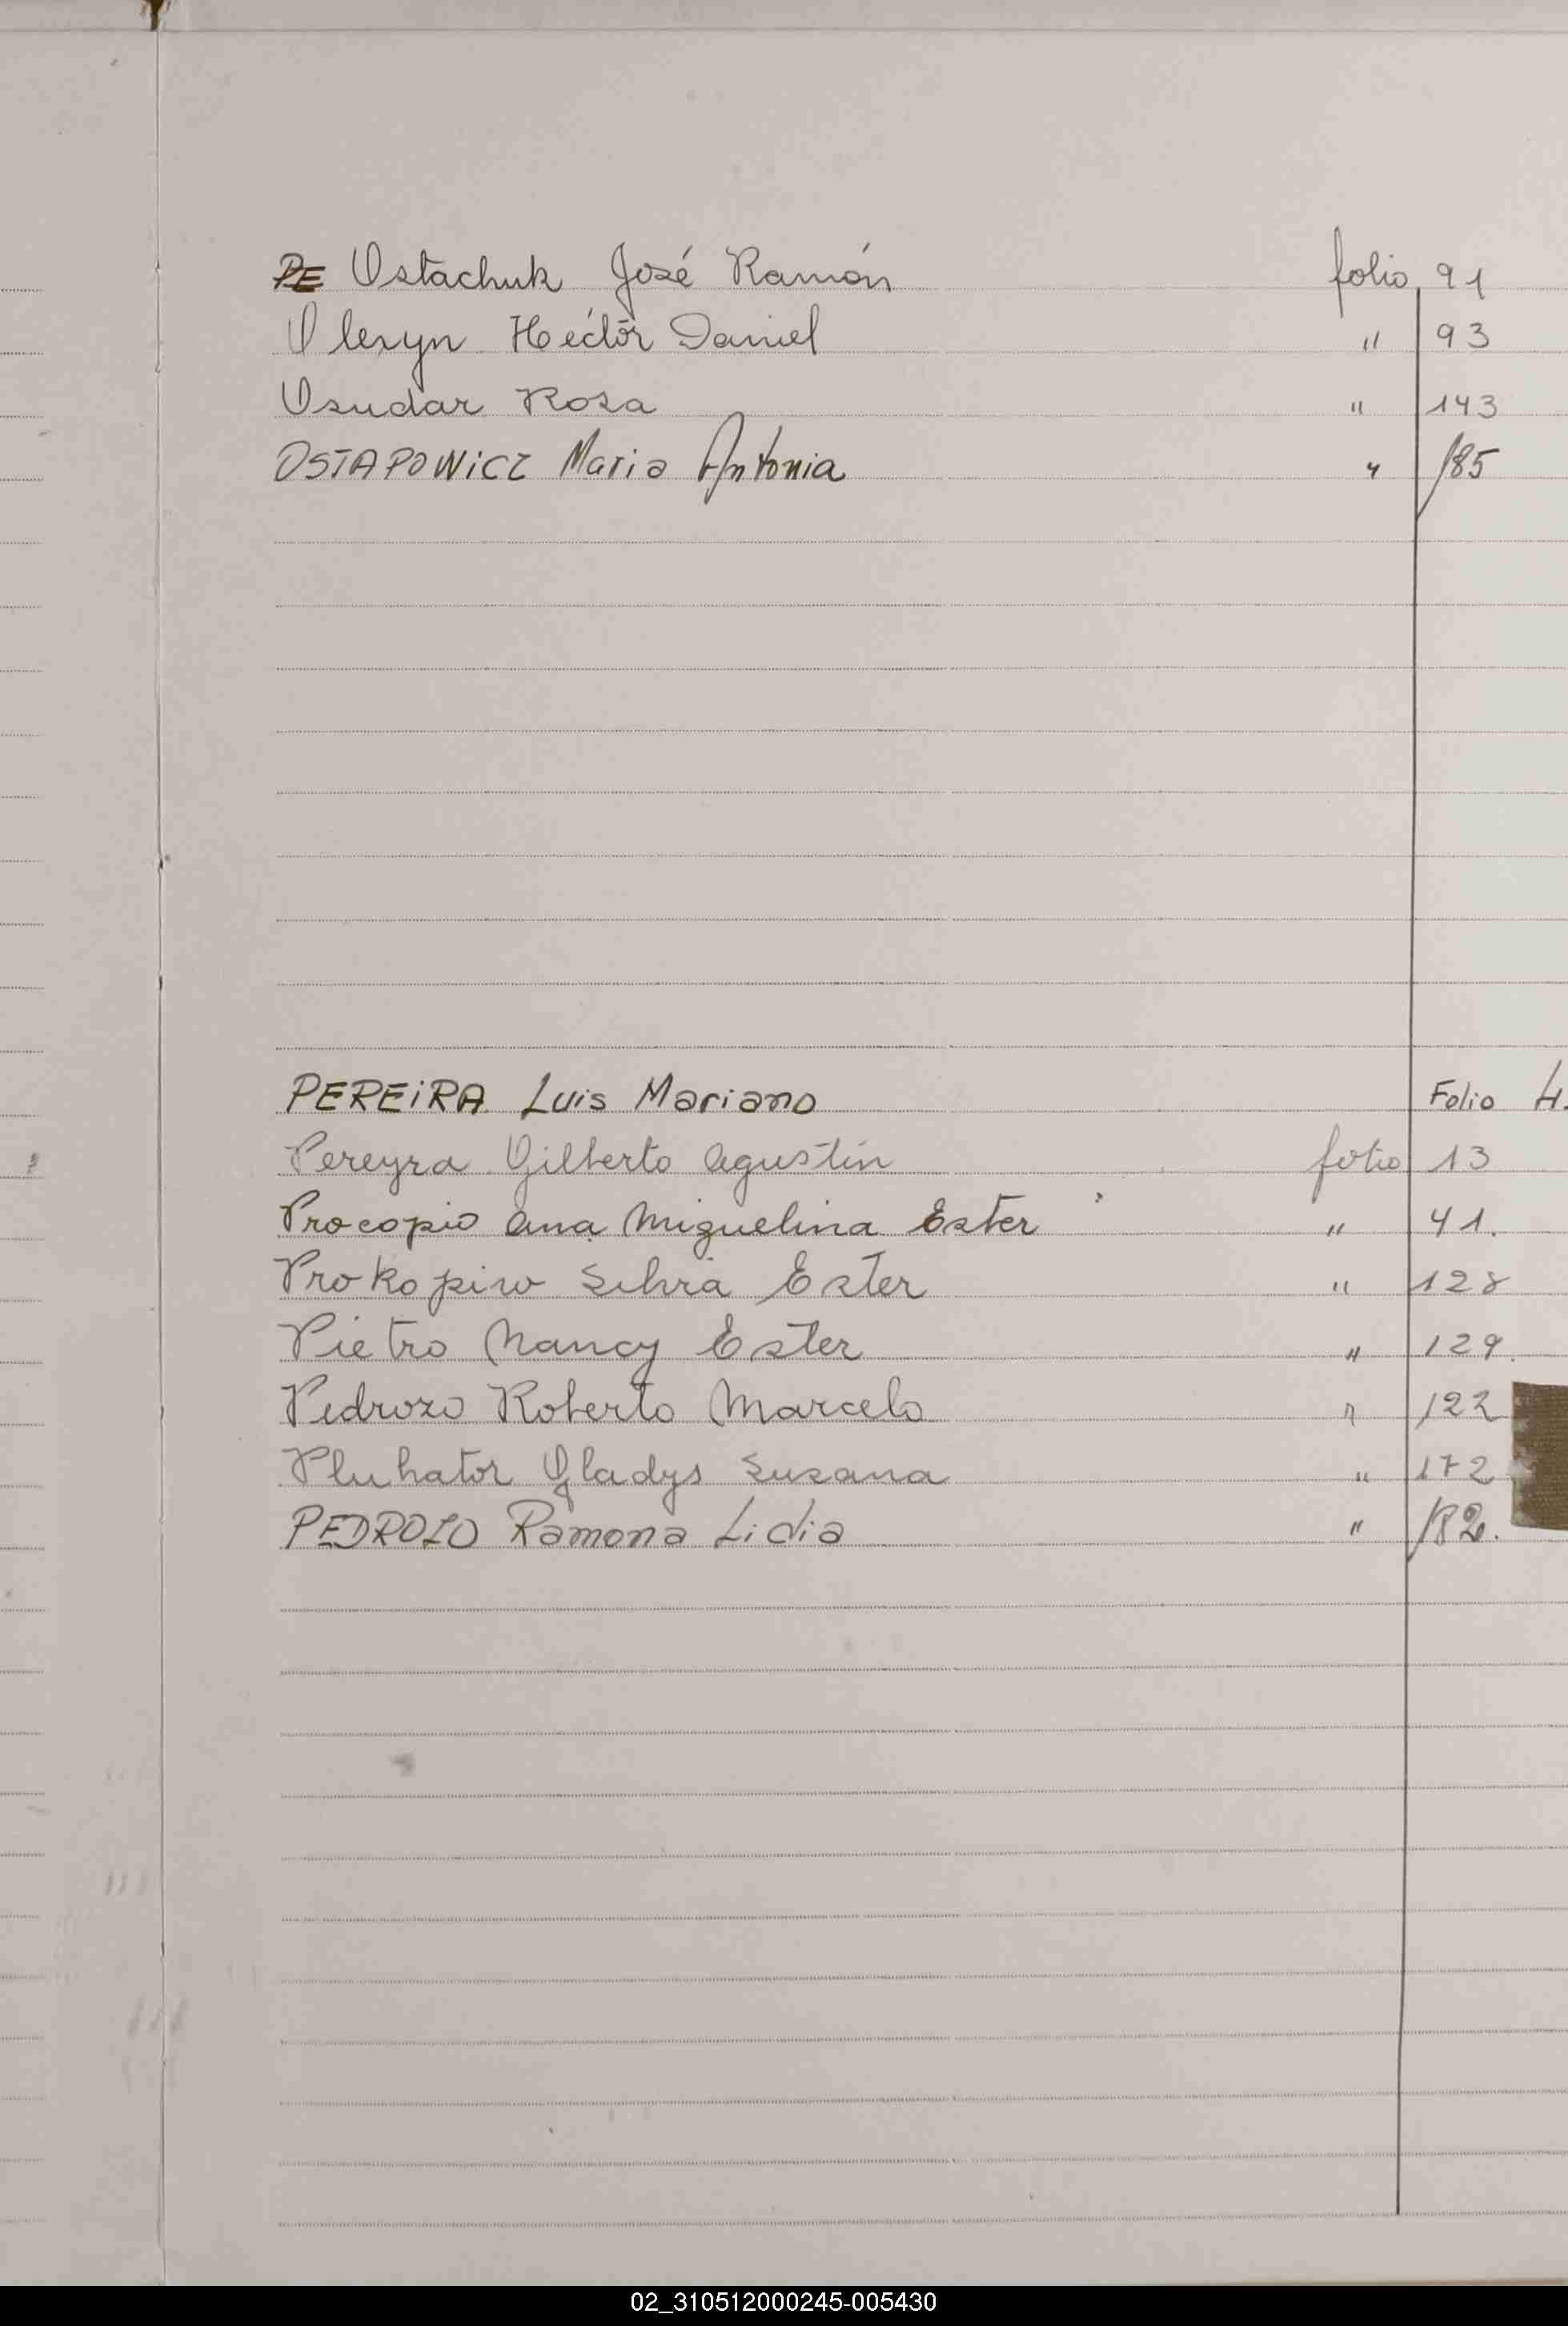 PE Ostachuk José Ramón folio 91
Olexyn Hećtor Daniel " 93
Osudar Rosa " 143
OSTAPOWICZ Maria Antonia " 185
PEREIRA Luis Mariano Folio 4.
Pereyra Gilberto Agustín folio 13
Procopio Ana Miguelina Ester " 41.
Prokopiw Silvia Ester " 128
Pietro Nancy Ester " 129.
Pedrozo Roberto Marcelo " 122
Pluhator Gladys Susana " 172
PEDROZO Ramona Lidia " 182.
02_310512000245-005430